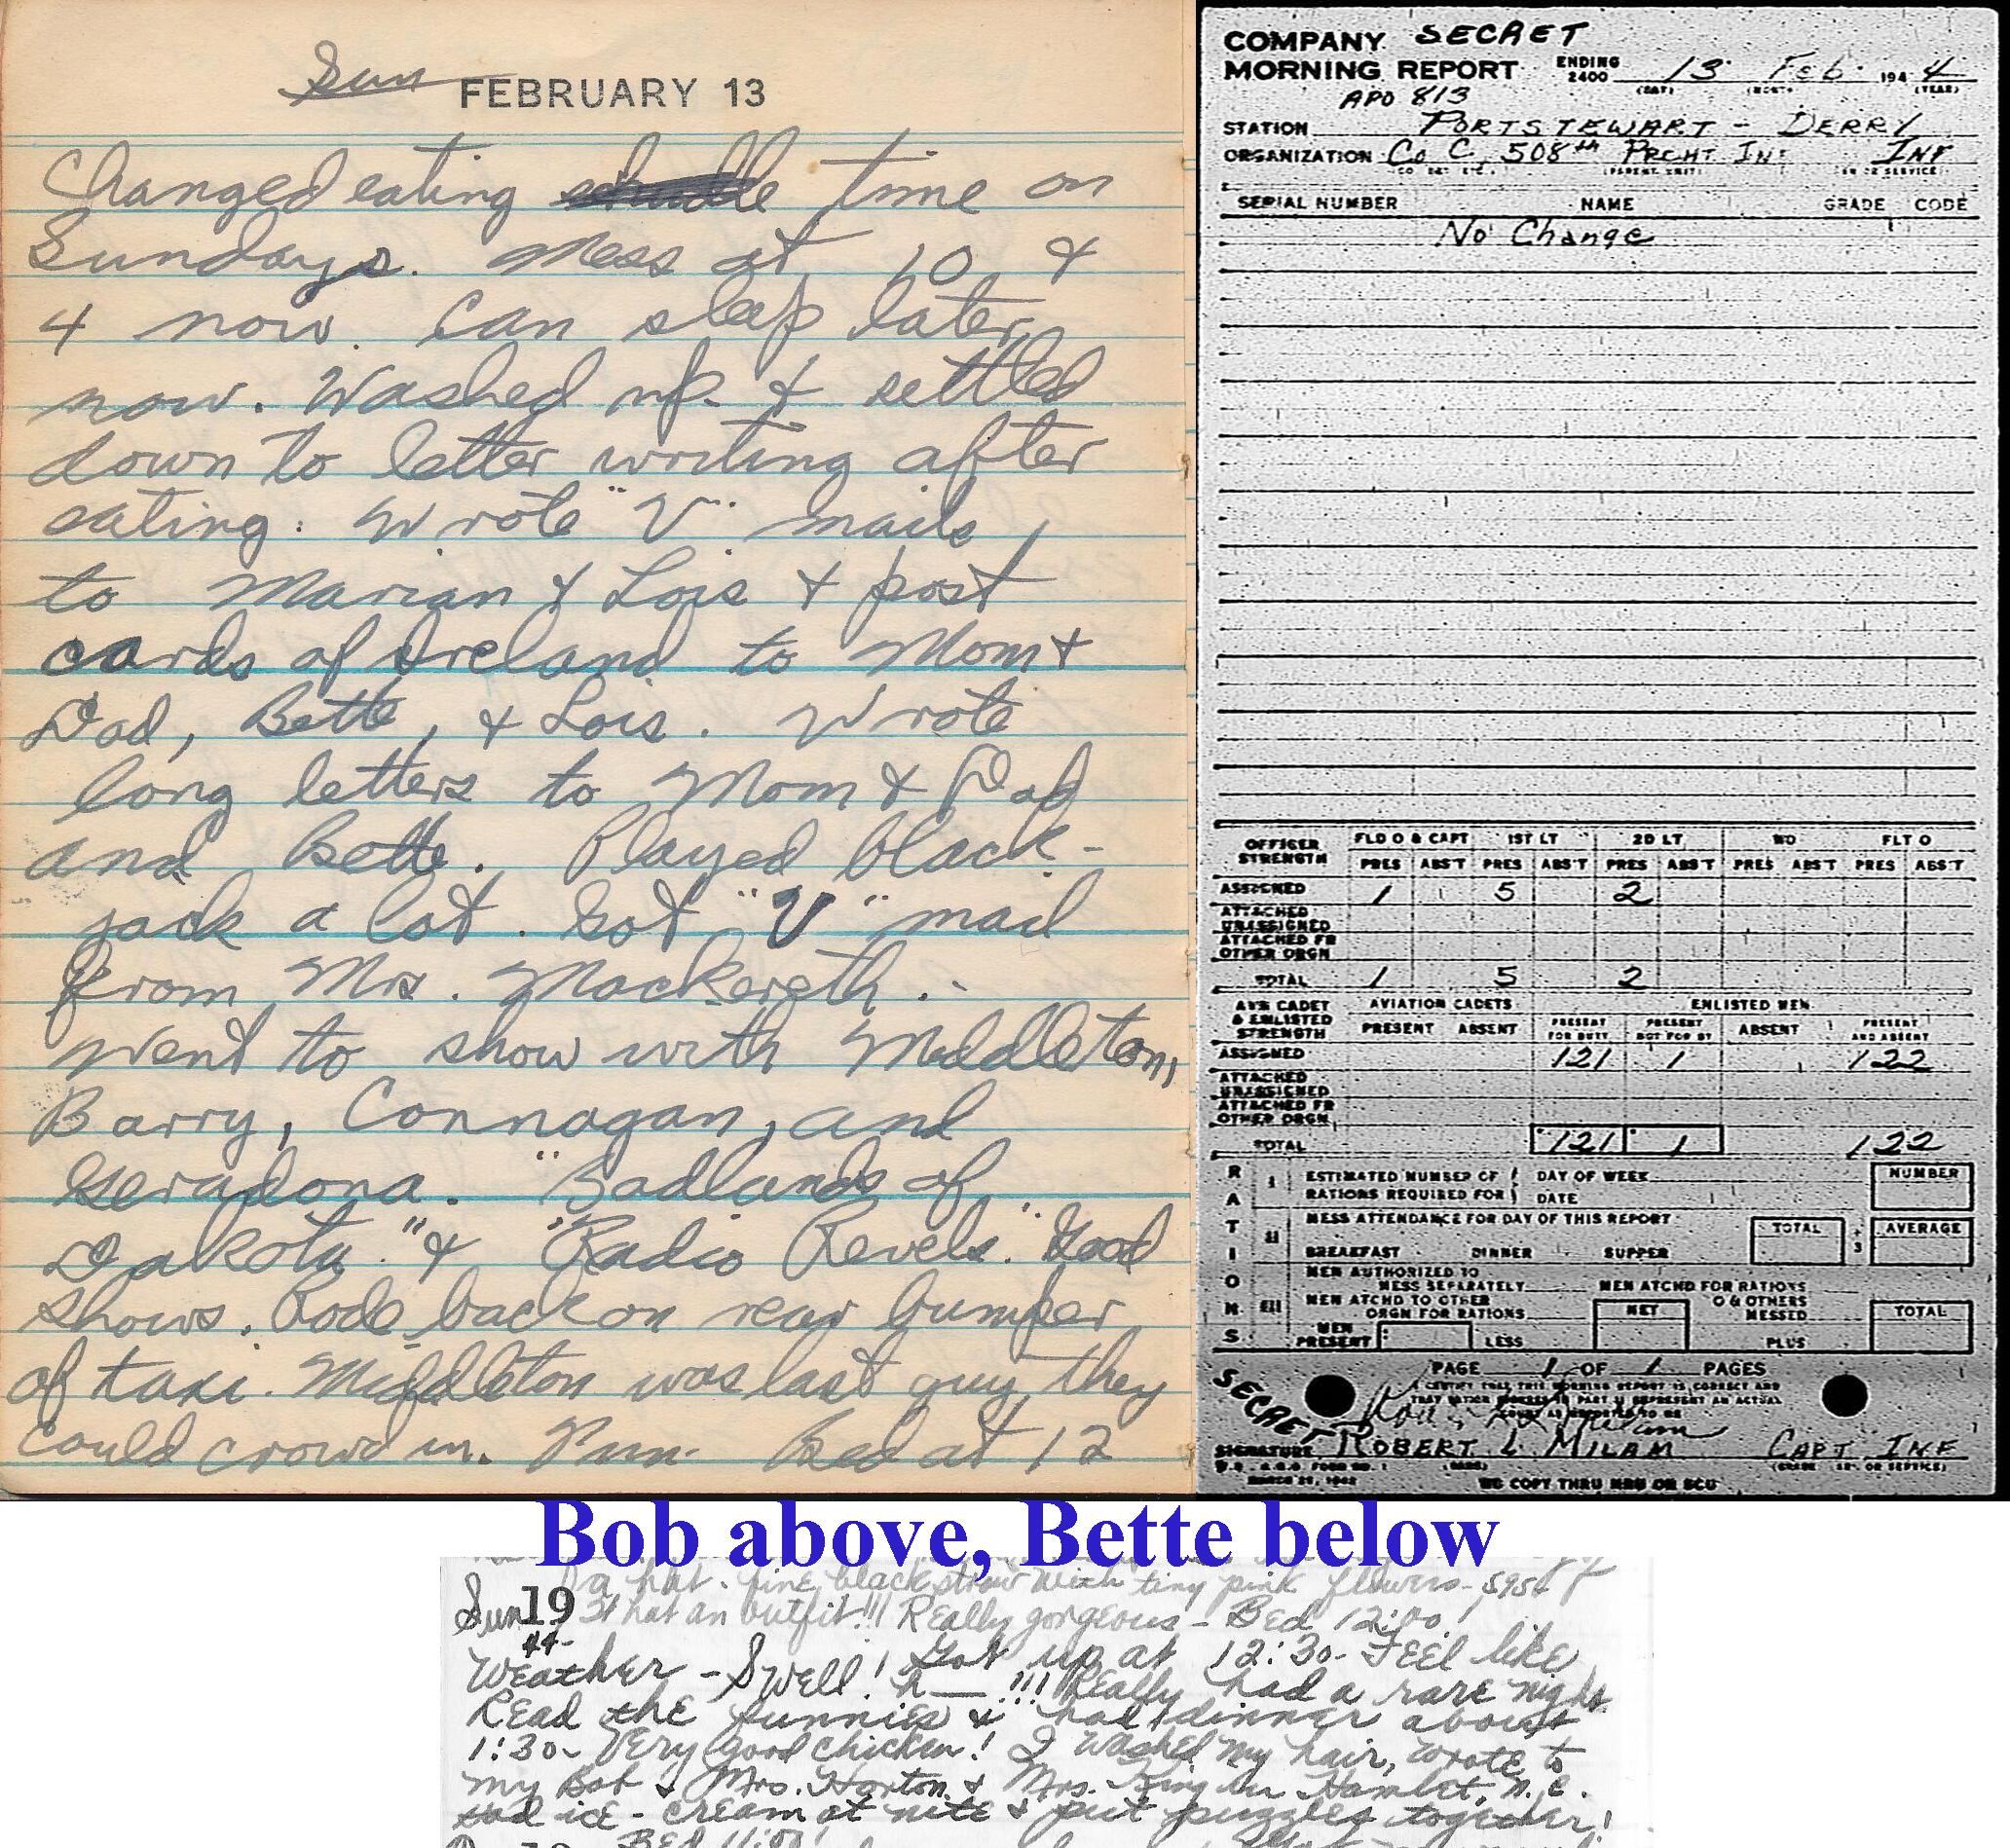 Sun FEBRUARY 13
Changed eating time on
Sundays. Mess at 10 &
4 now. Can sleep later
now. Washed up & settled
down to letter writing after
eating. Wrote "V" mails
to Marian & Lois & post
cards of Ireland to Mom &
Dad, Bette, & Lois. Wrote
long letters to Mom & Dad
and Bette. Played black-
jack a lot. Got "V" mail
from Mrs. Mackereth.
Went to show with Middleton,
Barry, Connagan, and
Geradona. "Badlands of
Dakota." & "Radio Revels." Good
shows. Rode back on rear bumper
of taxi. Middleton was last guy they
could crowd in. Fun. Bed at 12
COMPANY SECRET
MORNING REPORT ENDING 2400 13 Feb 1944
(DAY) (MONTH) (YEAR)
APO 813
STATION PORTSTEWART - DERRY
ORGANIZATION Co C, 508th PRCHT INF INF
(PARENT UNIT)
SERIAL NUMBER NAME GRADE CODE
No Change
OFFICER STRENGTH FLD O & CAPT 1ST LT 2D LT WO FLT O
PRES ABS'T PRES ABS'T PRES ABS'T PRES ABS'T PRES ABS'T
ASSIGNED 1 5 2
ATTACHED UNASSIGNED
ATTACHED FR OTHER ORGN
TOTAL 1 5 2
AVN CADET & ENLISTED STRENGTH AVIATION CADETS ENLISTED MEN
PRESENT ABSENT PRESENT FOR DUTY PRESENT NOT FOR DY ABSENT PRESENT AND ABSENT
ASSIGNED 121 1 122
ATTACHED UNASSIGNED
ATTACHED FR OTHER ORGN
TOTAL 121 1 122
RATIONS
I ESTIMATED NUMBER OF DAY OF WEEK NUMBER
RATIONS REQUIRED FOR DATE
II MESS ATTENDANCE FOR DAY OF THIS REPORT TOTAL ÷ 3 AVERAGE
BREAKFAST DINNER SUPPER
III MEN AUTHORIZED TO MESS SEPARATELY MEN ATCHD FOR RATIONS
MEN ATCHD TO OTHER ORGN FOR RATIONS NET O & OTHERS MESSED TOTAL
MEN PRESENT LESS PLUS
PAGE 1 OF 1 PAGES
SECRET
I CERTIFY THAT THIS MORNING REPORT IS CORRECT AND
SIGNATURE ROBERT L MILAM CAPT INF
MARCH 25, 1942 WE COPY THRU MRU OR SCU
Bob above, Bette below
a hat. fine black straw with tiny pink flowers- $9.56
Sun 19 What an outfit!!! Really gorgeous - Bed 12:00!
44- Weather - Swell! Got up at 12:30- Feel like
h__!!! Really had a rare night
Read the funnies & had dinner about
1:30- Very good chicken! I washed my hair, wrote to
my Bob & Mrs. Horton & Mrs. King in Hamlet, N.C.
Had ice-cream at nite & put puzzles together!
Bed 11:00!